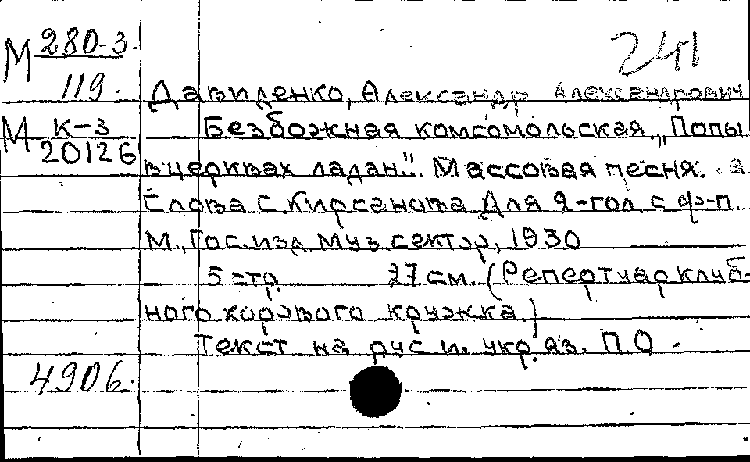 241
М 280-3
119.
М К-3
20126
Давиденко, Александр Александрович
Безбожная комсомольская „Попы
в церквах ладан". Массовая песня.
Слова С. Кирсанова Для 2-гол с ф-п.
М., Гос. изд. муз сектор, 1930
5 стр. 27 см. (Репертуар клуб-
ного хорового кружка)
Текст на рус и. укр. яз. П.О.
4906.